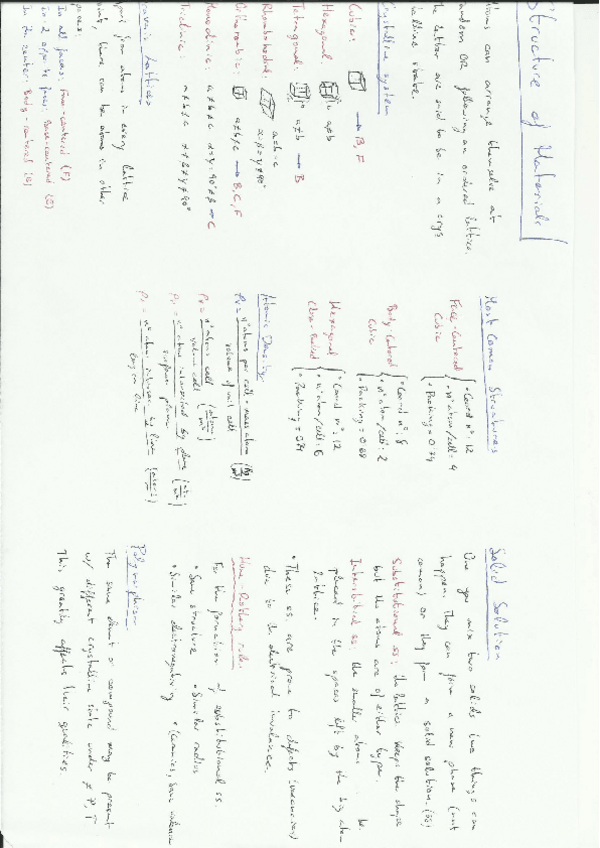 Structure of Materials
Atoms can arrange themselve at
random OR following an ordered lattice.
The latter are said to be in a crys
talline state.
Crystalline system
Cubic: → B, F
Hexagonal a≠b
Tetragonal: a≠b → B
Rhombohedral: a=b=c
α=β=γ≠90°
Orthorombic: a≠b≠c → B, C, F
Monoclinic: a≠b≠c α=γ=90°≠β → C
Triclinic: a≠b≠c α≠β≠γ≠90°
Bravais Lattices
Apart from atoms in every lattice
point, there can be atoms in other
places:
In all faces: Face-centered (F)
in 2 opposite faces: Base-centered (C)
In the center: Body-centered (B)
Most Comon Structures
Face-Centered
Cubic
• Coord nº: 12
• nº atom/cell: 4
• Packing = 0.74
Body-Centered
Cubic
• Coord nº: 8
• nº atom/cell: 2
• Packing = 0.68
Hexagonal
Close-Packed
• Coord nº: 12
• nº atom/cell: 6
• Packing = 0.74
Atomic Density
ρv = nº atoms per cell · mass atom
volume of unit cell
ρv = nº atoms cell
volume cell
ρp = nº atoms intersected by plane
surface plane
ρL = nº atoms intersec. by line
length line
Solid Solution
One you mix two solids two things can
happen. They can form a new phase (not
comon) or they form a solid solution. (ss)
Substitutional ss: the lattice keeps the shape
but the atoms are of either type.
Interstitial ss: the smaller atoms be
placed in the spaces left by the big atom
lattice.
• These ss are prone to defects (vacancies)
due to the electrical imbalance.
Hume-Rothery rules
For the formation of substitutional ss.
• Same structure • Similar radius
• Similar electronegativity • same valence
Polymorphism
The same element or compound may be present
w/ different crystalline state under ≠ P, T
This greatly affects their qualities